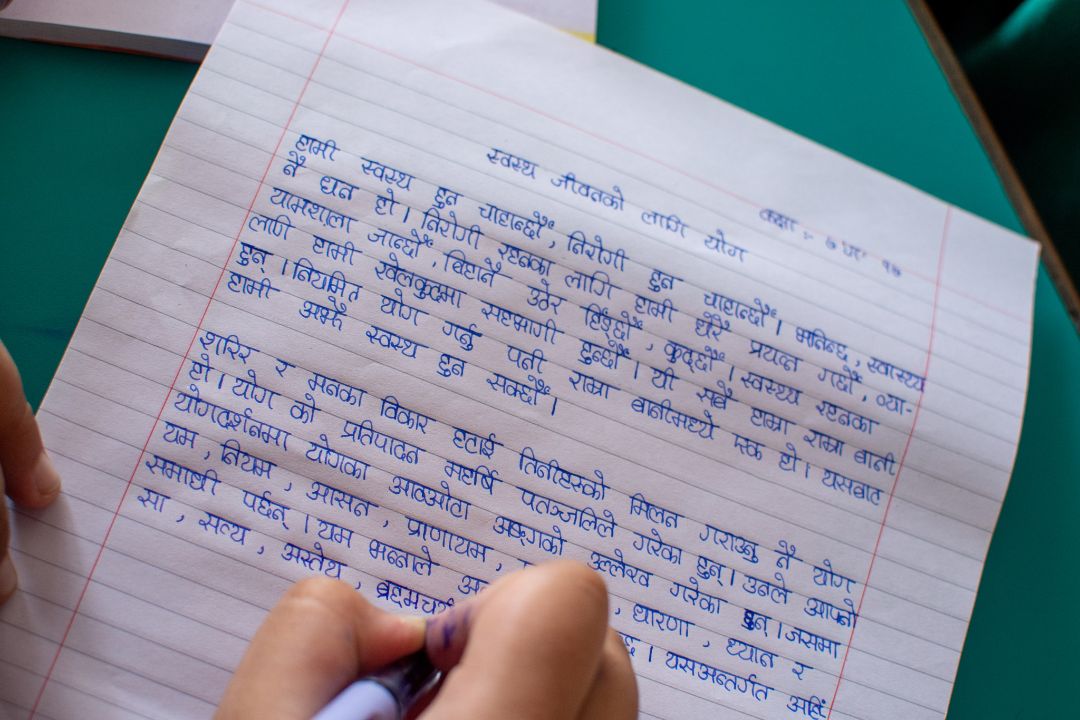 कक्षा :- ७ पाठ १७
स्वस्थ जीवनको लागि योग
हामी स्वस्थ हुन चाहान्छौँ, निरोगी हुन चाहान्छौँ । भनिन्छ, स्वास्थ्य
नै धन हो । निरोगी रहनका लागि हामी धेरै प्रयत्न गर्छौँ, व्या-
यामशाला जान्छौँ, बिहानै उठेर हिँड्छौँ, कुद्छौँ । स्वस्थ्य रहनका
लागि हामी खेलकुदमा सहभागी हुन्छौँ । यी सबै हाम्रा राम्रा बानी
हुन् । नियमित योग गर्नु पनी राम्रा बानीमध्ये एक हो । यसबाट
हामी अझै स्वस्थ हुन सक्छौँ ।
शरिर र मनका विकार हटाई तिनीहरूको मिलन गराउनु नै योग
हो । योग को प्रतिपादन महर्षि पतञ्जलिले गरेका हुन् । उनले आफ्नो
योगदर्शनमा योगका आठओटा अङ्गको उल्लेख गरेका हुन् । जसमा
यम, नियम, आसन, प्राणायम, धारणा, ध्यान र
समाधी पर्छन् । यम भन्नाले यसअन्तर्गत अहिं
सा, सत्य, अस्तेय, ब्रह्मचर्य